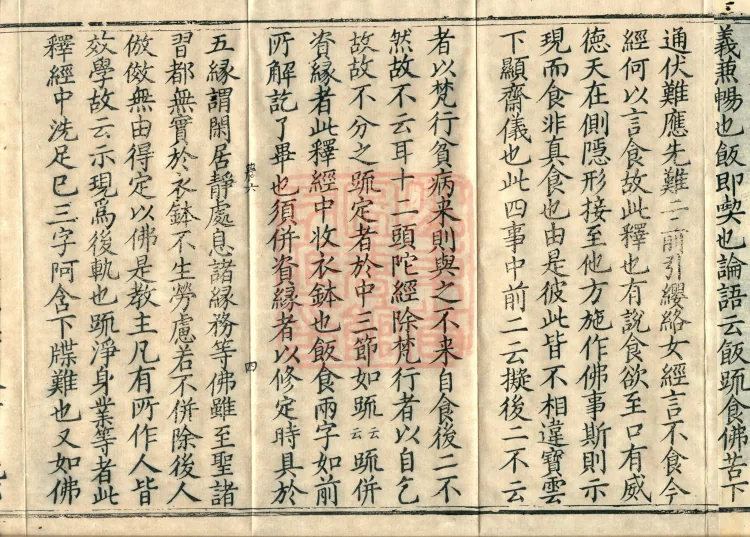 義兼暢也飯即喫也論語云飯䟽食佛苦下
通伏難應先難云前引纓絡女經言不食今
經何以言食故此釋也有說食欲至口有威
德天在側隱形接至他方施作佛事斯則示
現而食非真食也由是彼此皆不相違寶雲
下顯齋儀也此四事中前二云擬後二不云
者以梵行貧病来則與之不来自食後二不
然故不云耳十二頭陀經除梵行者以自乞
故故不分之䟽定者於中三節如䟽云云䟽併
資縁者此釋經中收衣鉢也飯食兩字如前
所解訖了畢也須併資縁者以修定時具於
五縁謂閑居靜處息諸縁務等佛雖至聖諸
習都無實於衣鉢不生勞慮若不併除後人
倣傚無由得定以佛是教主凡有所作人皆
效學故云示現爲後軌也䟽淨身業等者此
釋經中洗足巳三字阿含下牒難也又如佛
四